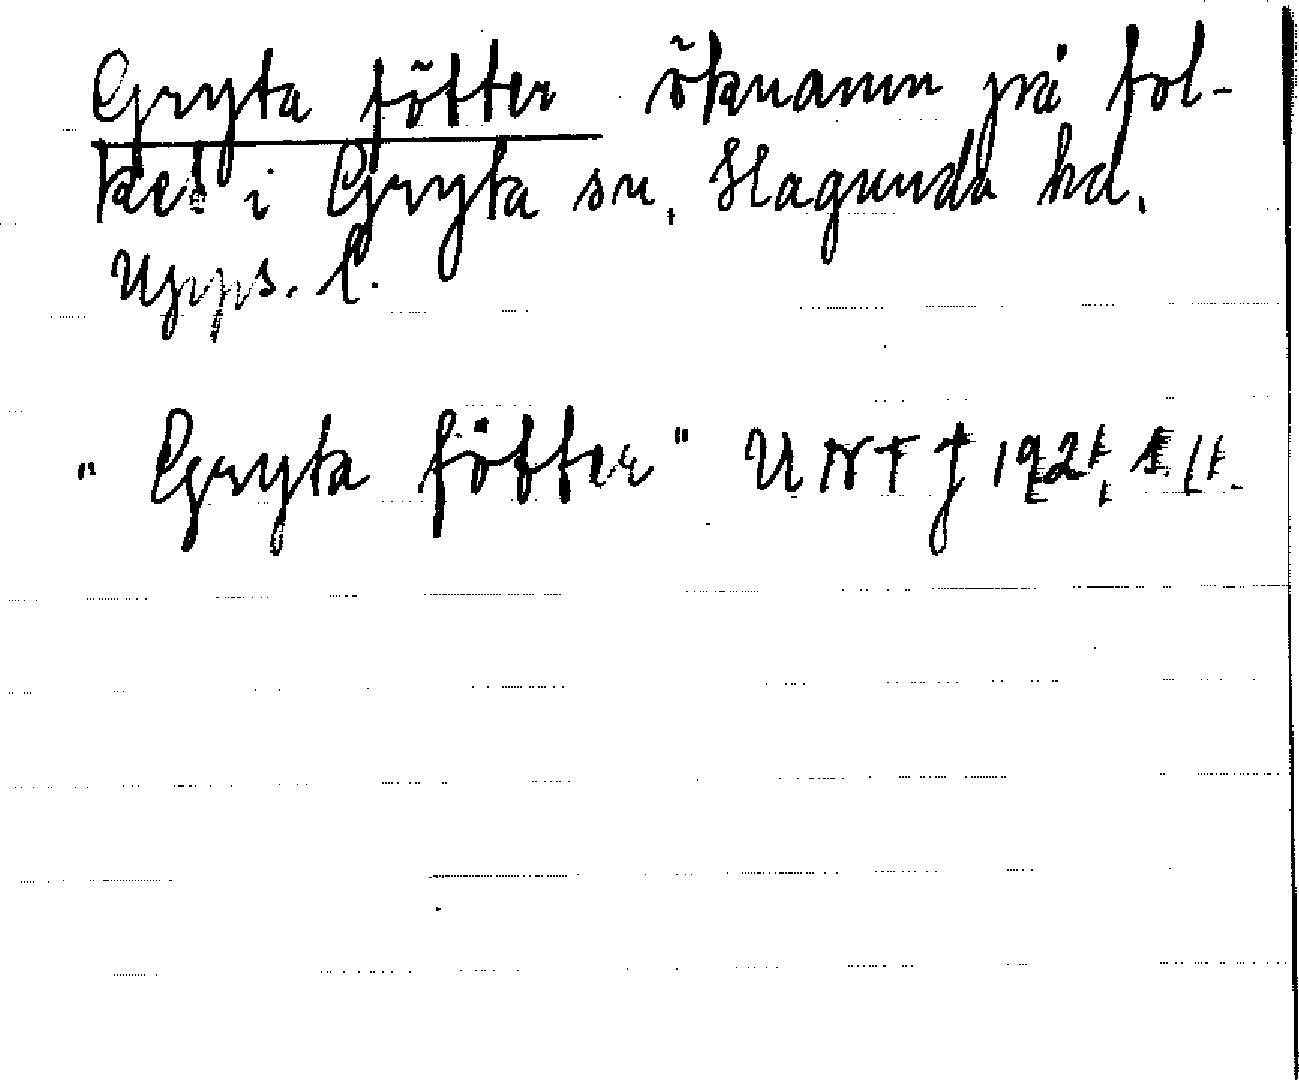 Gryta fötter öknamn på fol-
ket i Gryta sn, Hagunda hd.
Upps. l.
"Gryta fötter" UNT